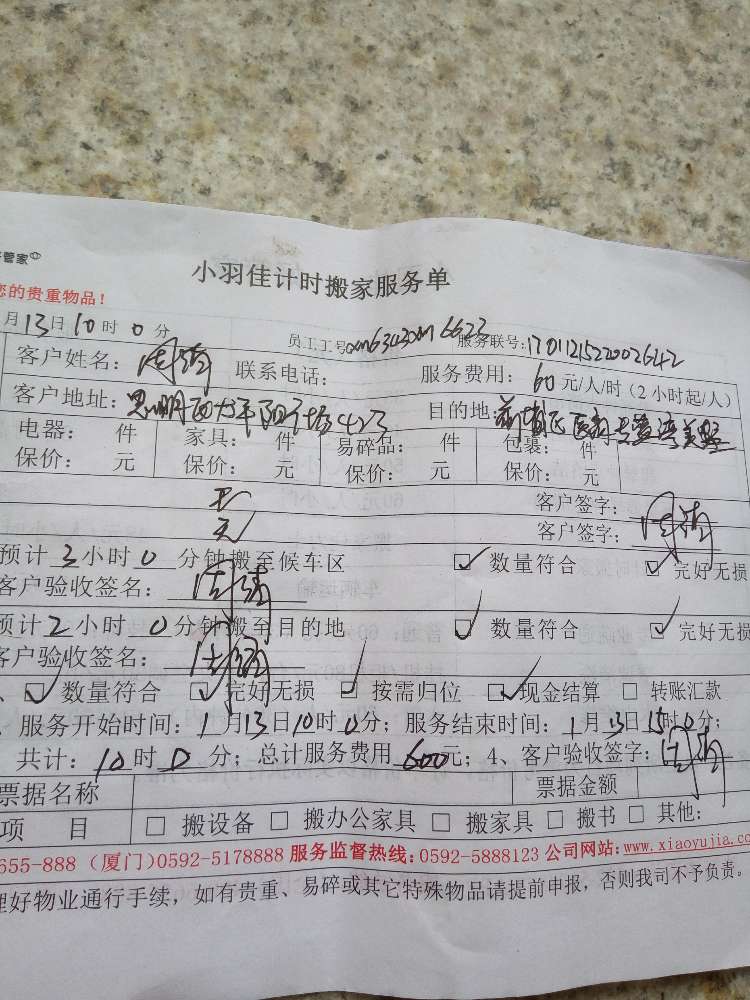 管家
小羽佳计时搬家服务单
您的贵重物品！
月13日10时0分 员工工号 服务联号：1701121522002642
客户姓名： 联系电话： 服务费用：60元/人/时（2小时起/人）
客户地址：思明 423 目的地：
电器： 件 家具： 件 易碎品： 件 包裹： 件
保价： 元 保价： 元 保价： 元 保价： 元
无 客户签字：
无 客户签字：
预计3小时0分钟搬至候车区 ☑ 数量符合 ☑ 完好无损
客户验收签名：
预计2小时0分钟搬至目的地 ☑ 数量符合 ☑ 完好无损
客户验收签名：
、☑ 数量符合 ☑ 完好无损 ☑ 按需归位 ☑ 现金结算 □ 转账汇款
、服务开始时间：1月13日10时0分；服务结束时间：1月13日15时0分；
共计：10时0分；总计服务费用600元；4、客户验收签字：
票据名称 票据金额
项 目 □ 搬设备 □ 搬办公家具 □ 搬家具 □ 搬书 □ 其他：
655-888（厦门）0592-5178888 服务监督热线：0592-5888123 公司网站：www.xiaoyujia.com
理好物业通行手续，如有贵重、易碎或其它特殊物品请提前申报，否则我司不予负责。